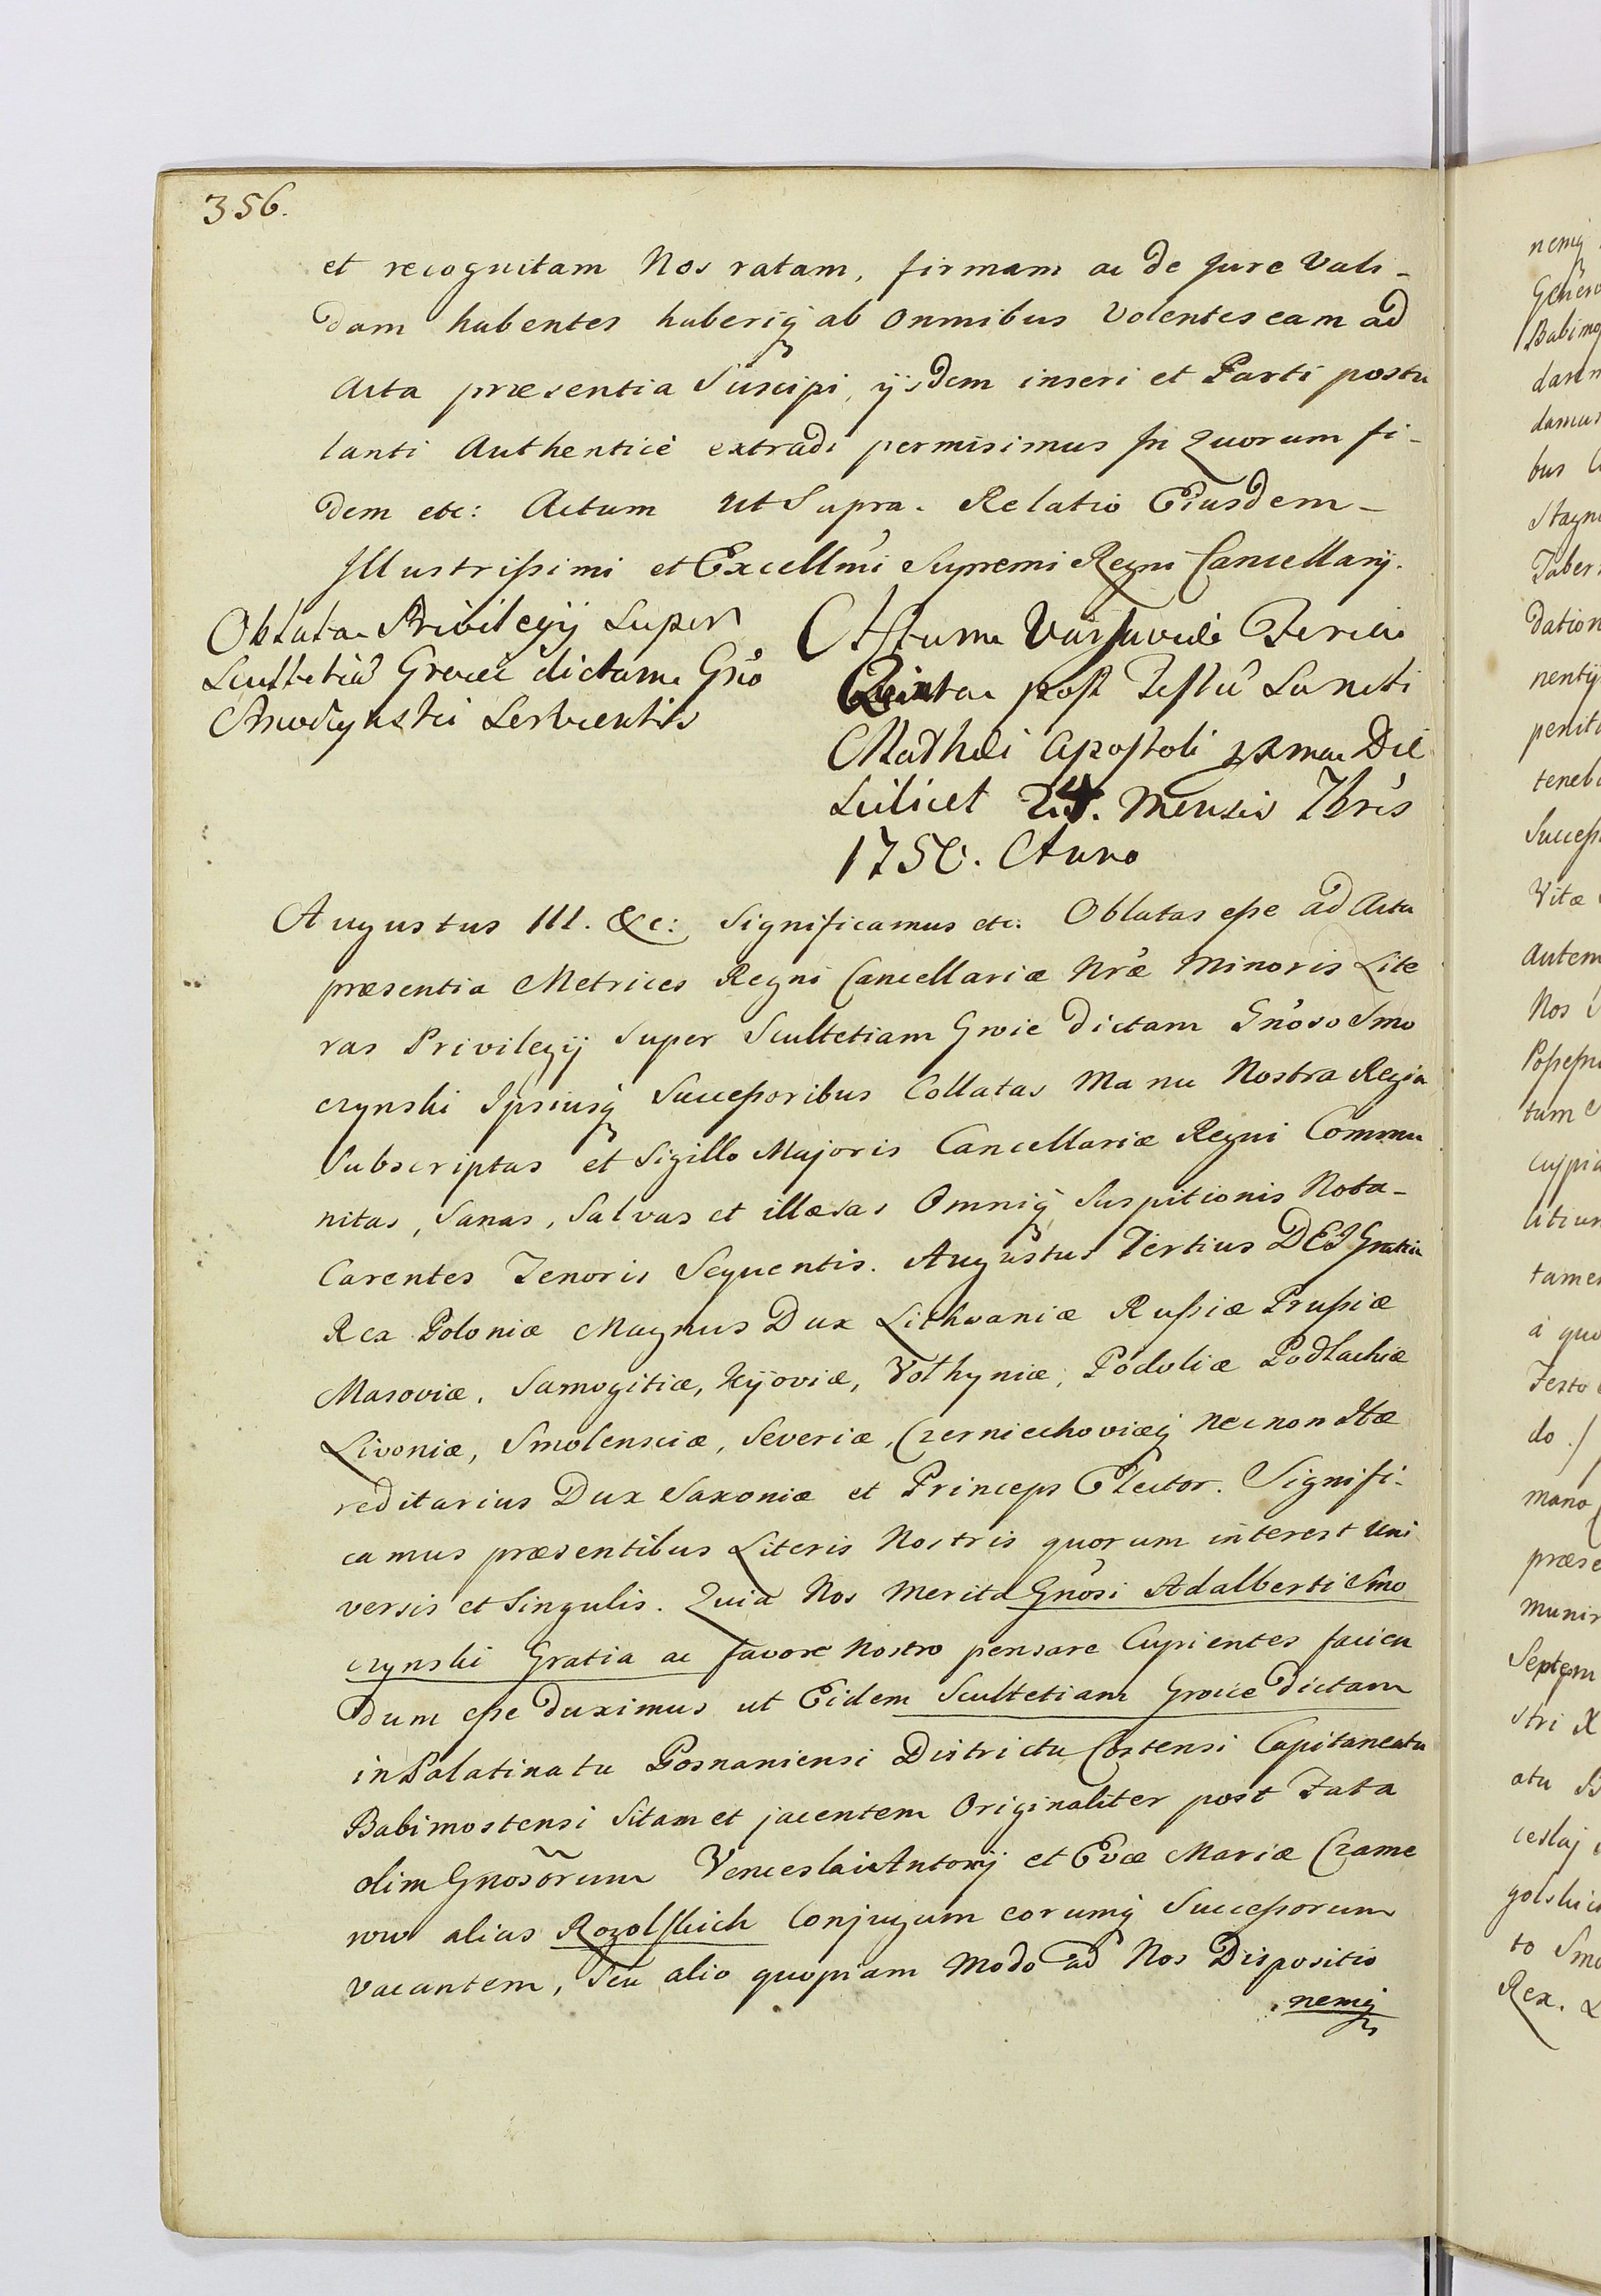 356.
et recognitam Nos ratam, firmam ac de Jure Vali-
dam habentes haberiq3 ab Omnibus Volentes eam ad
Acta præsentia Suscipi, ijsdem inseri et Parti postu
lanti Authenticè extradi permisimus In Quorum fi-
dem etc: Actum ut Supra. Relatio Eiusdem-
Illustrissimi et Excellmi Supremi Regni Cancellarij.
Oblata Privilegij Super
Scultetia Growie dictam Gno
Smoczynski Servientis
Actum Varsaviæ Feria
Quinta post Festu Sancti
Mathæi Apostoli Die
Scilicet 24. Mensis 7bris
1750. Anno
Augustus III. &c: Significamus etc. Oblatas esse ad Acta
præsentia Metrices Regni Cancellariæ Nræ Minoris Lite
ras Privilegij Super Scultetiam Growie dictam Gnoso Smo
czynski Ipsiusq3 Successoribus Collatas Manu Nostra Regia
Subscriptas et Sigillo Majoris Cancellariæ Regni Commu
nitas, Sanas, Salvas et illæsas Omniq3 Suspitionis Nota-
Carentes Tenoris Sequentis. Augustus Tertius DEI Gratia
Rex Poloniæ Magnus Dux Lithvaniæ Russiæ Prussiæ
Masoviæ, Samogitiæ, Kijoviæ, Volhyniæ, Podoliæ Podlachiæ
Livoniæ, Smolensciæ, Severiæ, Czerniechoviæq3 necnon Hæ
reditarius Dux Saxoniæ et Princeps Elector. Signifi-
camus præsentibus Literis Nostris quorum interest Uni
versis et Singulis. Quia Nos Merita Gnosi Adalberti Smo
czynski Gratia ac favore Nostro pensare Cupientes facien
dum esse duximus ut Eidem Scultetiam Growie dictam
in Palatinatu Posnaniensi Districtu Costensi Capitaneatu
Babimostensi Sitam et jacentem Originaliter post Fata
olim Gnosorum Venceslai Antonij et Evæ Mariæ Crame
row alias Rogolskich Conjugum eorumq3 Successorum
vacantem, Seu alio quopiam Modo ad Nos Dispositio
nemq3